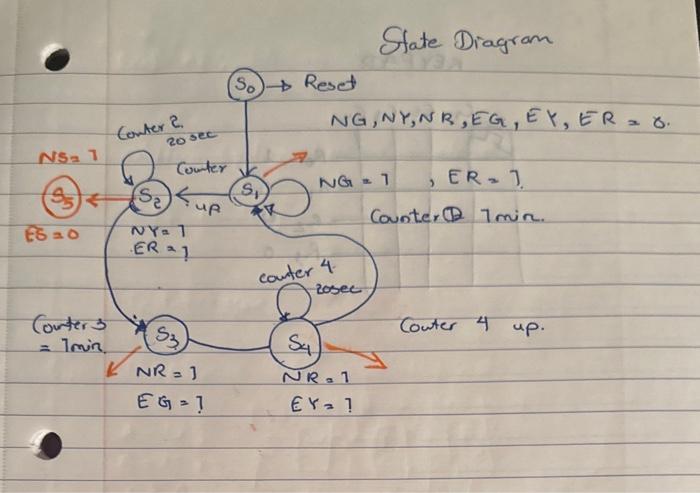 State Diagram
S0 → Reset
NG, NY, NR, EG, EY, ER = 0.
Counter 2
20 sec
NS = 1
S5
ES = 0
S2
Counter
up
S1
NG = 1 , ER = 1
Counter 1 1min.
NY = 1
ER = 1
counter 4
20sec
Counter 3
= 1min
S3
S4
Couter 4 up.
NR = 1
EG = 1
NR = 1
EY = 1